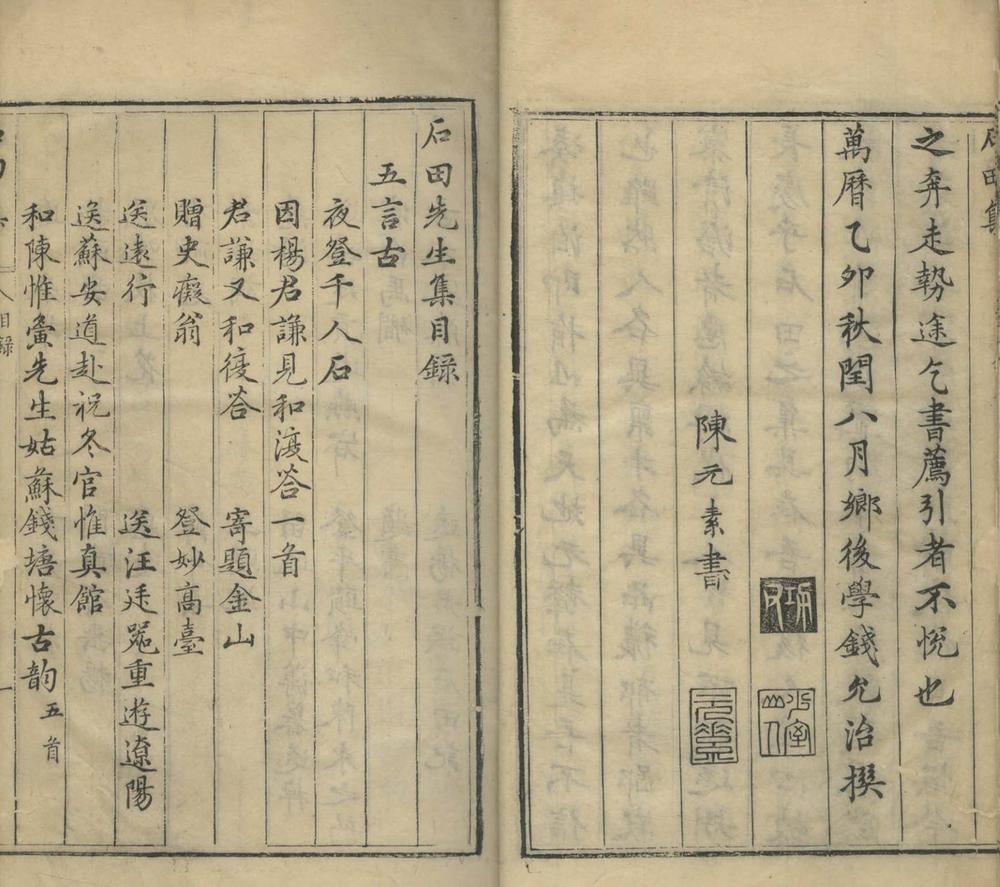 石田集
之奔走勢途乞書薦引者不悅也
萬曆乙卯秋閏八月鄉後學錢允治撰
陳元素書
石田先生集目錄
五言古
夜登千人石
因楊君謙見和漫答一首
君謙又和復答 寄題金山
贈史癡翁 登妙高臺
送遠行 送汪廷器重遊遼陽
送蘇安道赴祝冬官惟真館
和陳惟夤先生姑蘇錢塘懷古韵五首
目錄
一